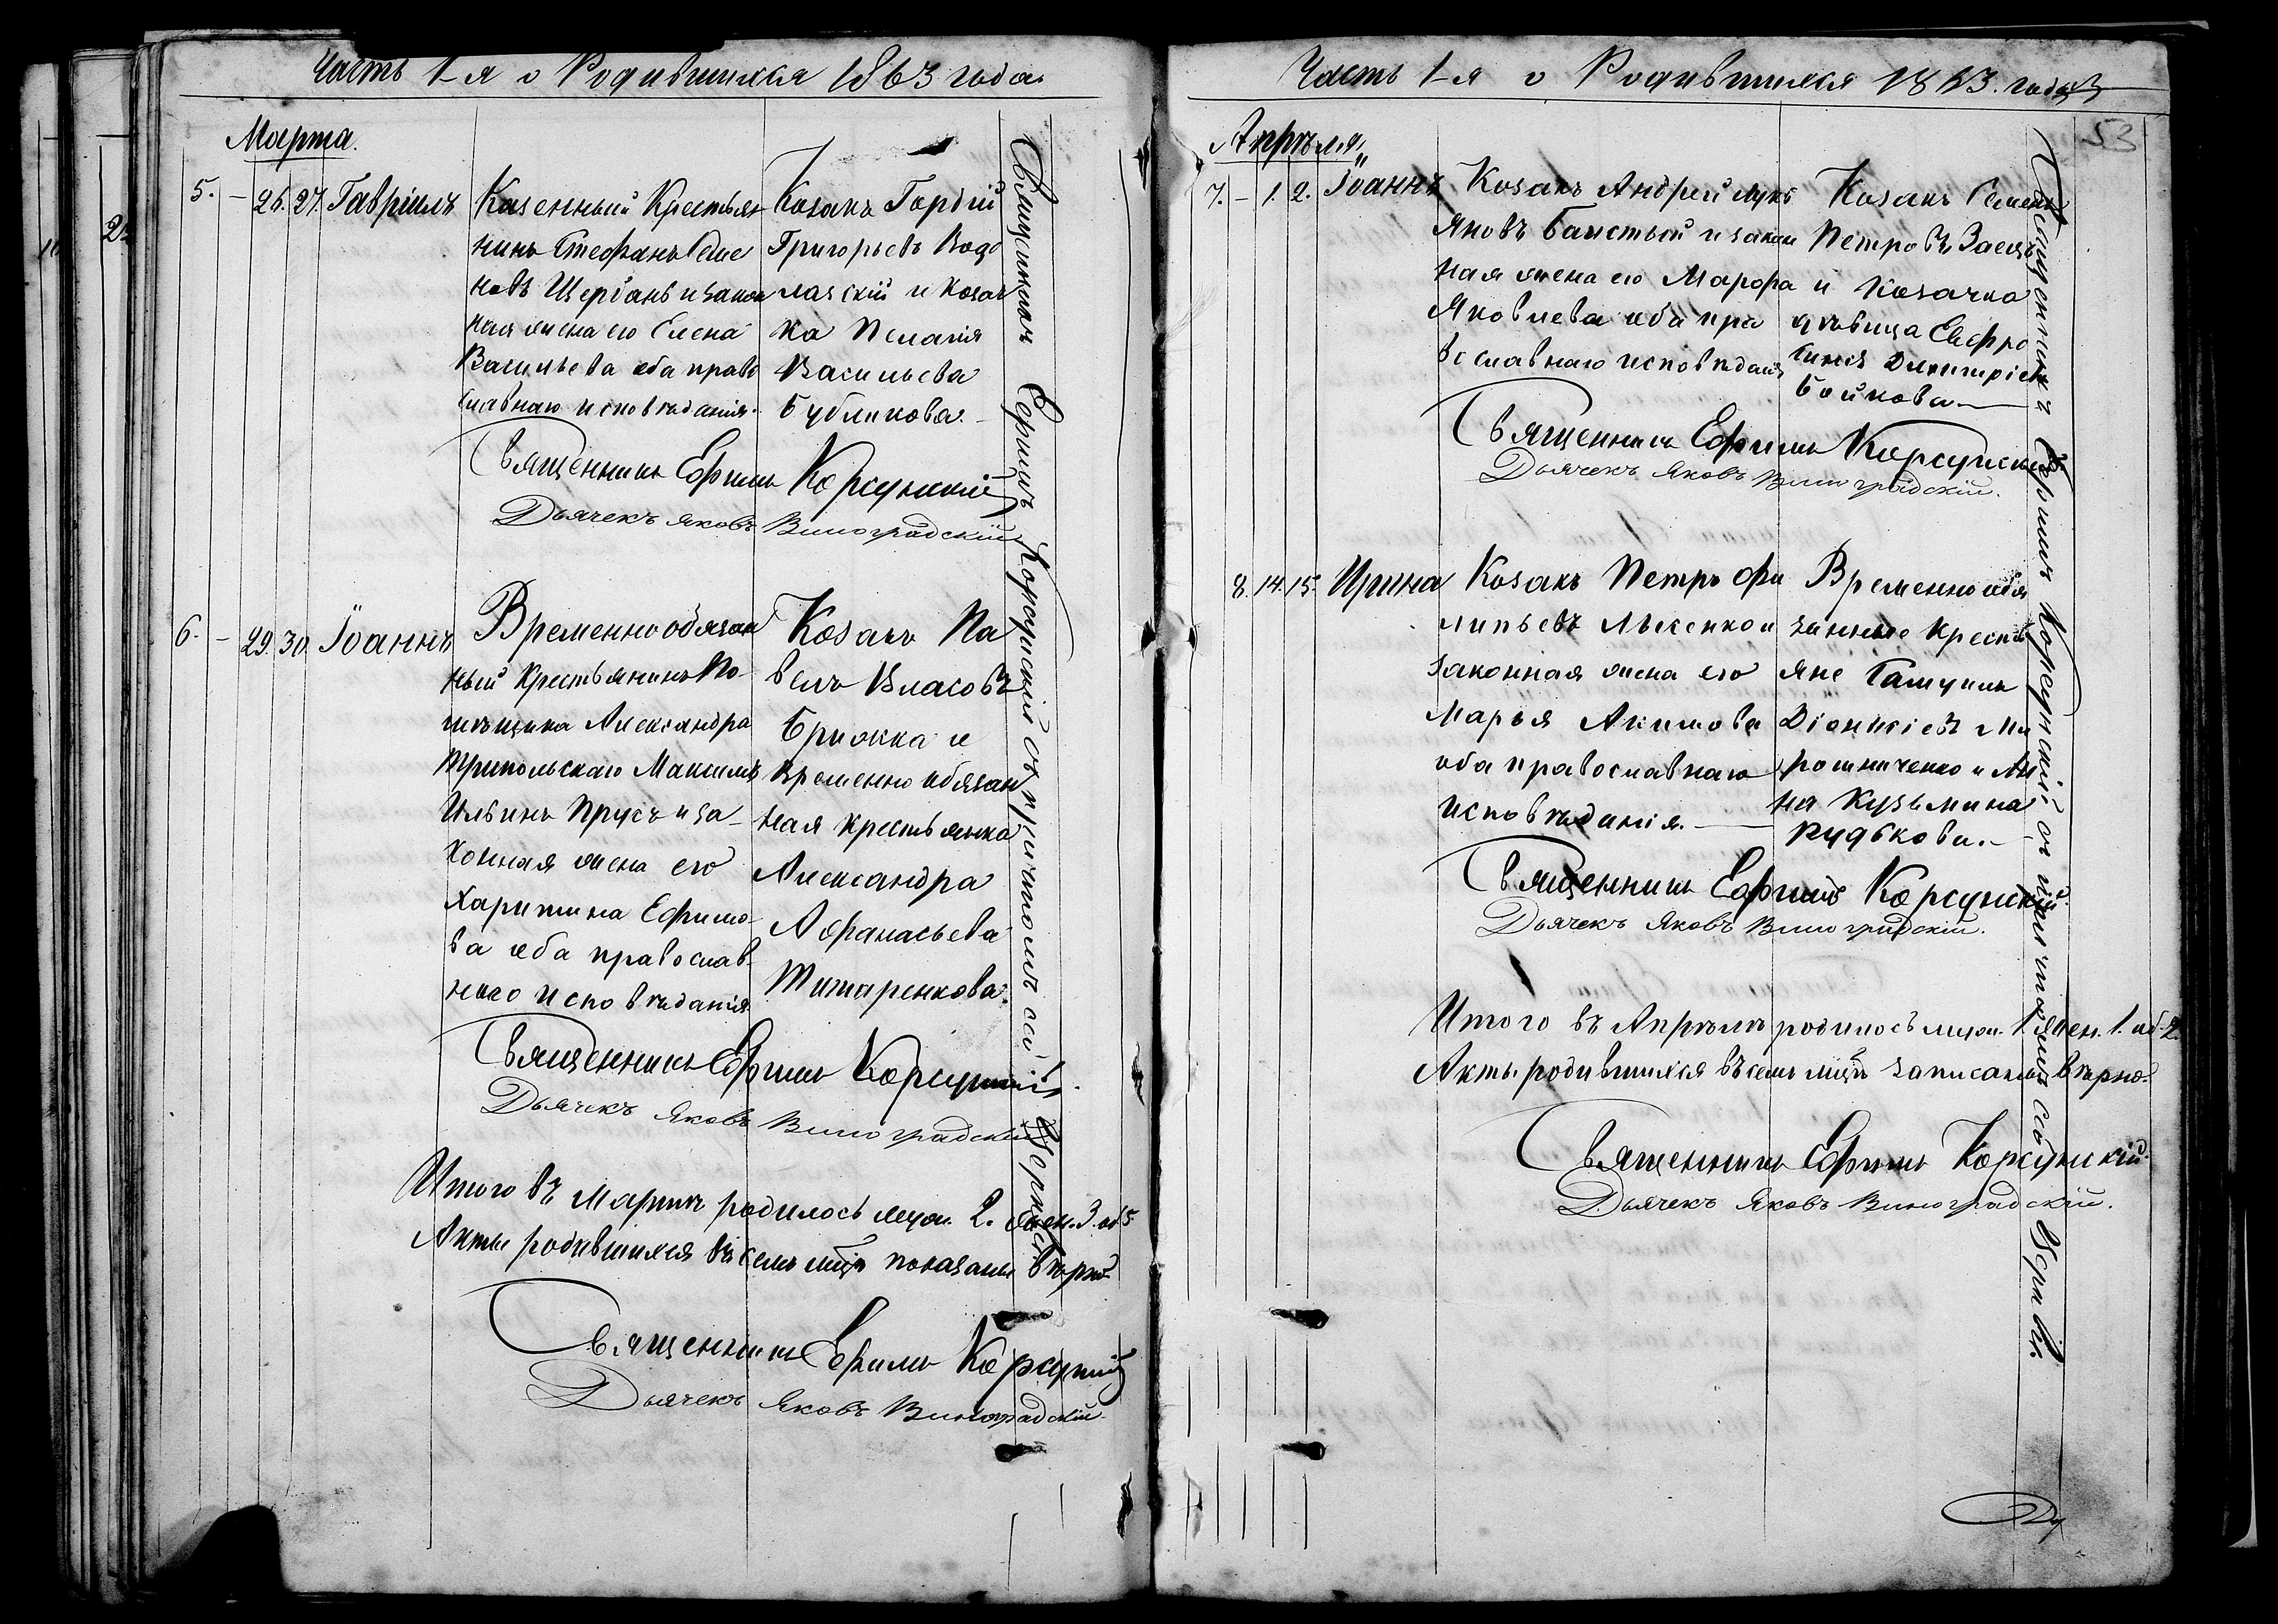 Часть 1-я о Родившихся 1863 года
Марта.
5. - 26. 27. Гавріилъ
Казенный Крестья
нинъ Стефанъ Семе
новъ Щербань и закон
ная жена его Елена
Васильева оба право
славнаго исповѣданія.
Козакъ Гордій
Григорьевъ Водо
лазскій и Козач
ка Пелагія
Васильева
Бубликова.
Священникъ Ефимъ Корсунскій
Дьячекъ Яковъ Виноградскій
6. - 29. 30. Іоаннъ
Временнообязан
ный Крестьянинъ По-
мѣщика Александра
Трипольскаго Максимъ
Ильинъ Прусъ и за-
конная жена его
Харитина Ефимо-
ва оба православ-
наго исповѣданія
Козакъ Па
велъ Власовъ
Брижка и
Временно обязан
ная крестьянка
Александра
Афанасьева
Титаренкова.
Священникъ Ефимъ Корсунскій
Дьячекъ Яковъ Виноградскій
Итого въ Мартѣ родилось муж. 2. жен. 3. об. 5.
Акты родившихся въ семъ мцѣ показаны вѣрно
Священникъ Ефимъ Корсунскій
Дьячекъ Яковъ Виноградскій.
Священникъ Ефимъ Корсунскій съ причтомъ
Часть 1-я о Родившихся 1863. года
53
Апрѣля
7. - 1. 2. Іоаннъ
Козакъ Андрей Лукь
яновъ Баистый и закон
ная жена его Марфа
Яковлева оба пра
вославнаго исповѣданія
Козакъ Семенъ
Петровъ Заецъ
и Козачка
дѣвица Евфро
синія Димитріева
Бойкова
Священникъ Ефимъ Корсунскій
Дьячекъ Яковъ Виноградскій.
8. 14. 15. Ирина
Козакъ Петръ Фи
липьевъ Лысенко и
законная жена его
Марья Акимова
оба православнаго
исповѣданія.
Временно обя
занные Кресть
яне Самуилъ
Діонисіевъ Ми
рошниченко и Ан
на Кузьмина
Рудькова.
Священникъ Ефимъ Корсунскій.
Дьячекъ Яковъ Виноградскій.
Итого въ Апрѣлѣ родилось муж. 1. жен. 1. об. 2.
Акты родившихся въ семъ мцѣ записаны вѣрно.
Священникъ Ефимъ Корсунскій.
Дьячекъ Яковъ Виноградскій.
Священникъ Ефимъ Корсунскій съ причтомъ